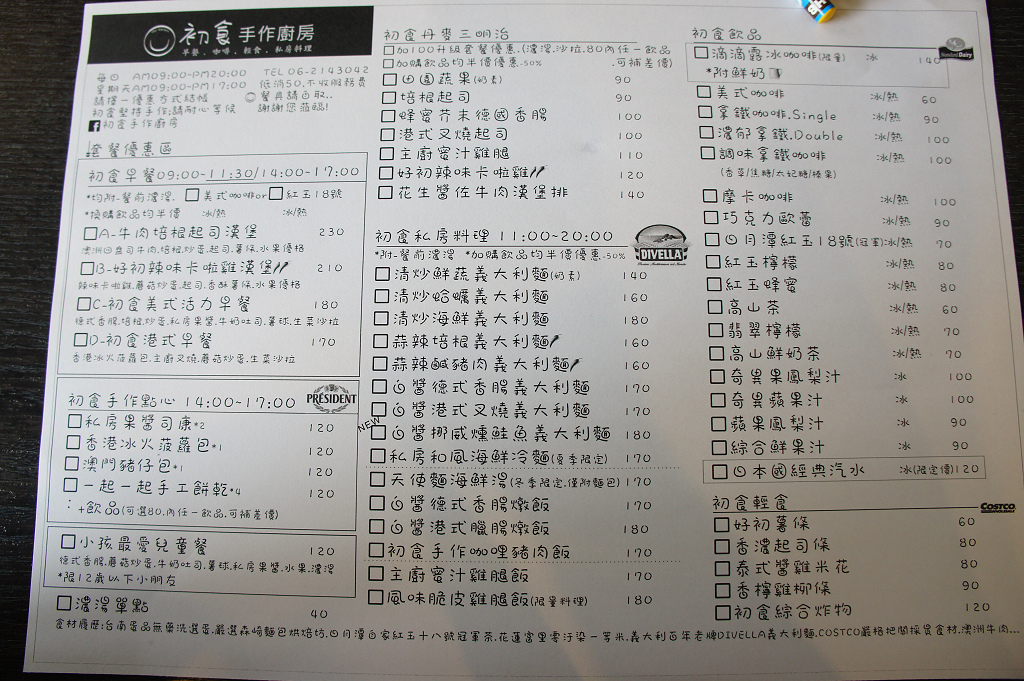 初食 手作廚房
早餐．咖啡．輕食．私房料理
每日 AM09:00-PM20:00 TEL 06-2143042
星期天AM09:00-PM17:00 低消50.不收服務費
請擇一優惠方式結帳 餐具請自取..
初食堅持手作;請耐心等候 謝謝您蒞臨!
初食手作廚房
套餐優惠區
初食早餐09:00-11:30/14:00-17:00
*均附-餐前濃湯. □美式咖啡or□紅玉18號
*換購飲品均半價 冰/熱 冰/熱
□A-牛肉培根起司漢堡 230
澳洲日盎司牛肉.培根.炒蛋.起司.薯條.水果優格
□B-好初辣味卡啦雞漢堡 210
辣味卡啦雞.蘑菇炒蛋.起司.香酥薯條.水果優格
□C-初食美式活力早餐 180
德式香腸.培根.炒蛋.私房果醬.牛奶吐司.薯球.生菜沙拉
□D-初食港式早餐 170
香港冰火菠蘿包.主廚叉燒.蘑菇炒蛋.生菜沙拉
初食手作點心 14:00-17:00
PRÉSIDENT
□私房果醬司康*2 120
□香港冰火菠蘿包*1 120
□澳門豬仔包*1 120
□一起一起手工餅乾*4 120
:+飲品(可選80.內任一飲品.可補差價)
□小孩最愛兒童餐 120
德式香腸.蘑菇炒蛋.牛奶吐司.薯球.私房果醬.水果.濃湯
*限12歲以下小朋友
□濃湯單點 40
初食丹麥三明治
□加100升級套餐優惠.(濃湯.沙拉.80內任一飲品
□加購飲品均半價優惠-50% .可補差價)
□田園蔬果(奶素) 90
□培根起司 90
□蜂蜜芥末德國香腸 100
□港式叉燒起司 100
□主廚蜜汁雞腿 110
□好初辣味卡啦雞 120
□花生醬佐牛肉漢堡排 140
初食私房料理 11:00~20:00
DIVELLA
*附-餐前濃湯 *加購飲品均半價優惠-50%
□清炒鮮蔬義大利麵(奶素) 140
□清炒蛤蠣義大利麵 160
□清炒海鮮義大利麵 180
□蒜辣培根義大利麵 160
□蒜辣鹹豬肉義大利麵 160
□白醬德式香腸義大利麵 170
□白醬港式叉燒義大利麵 170
NEW □白醬挪威燻鮭魚義大利麵 180
□私房和風海鮮冷麵(夏季限定) 170
□天使麵海鮮湯(冬季限定.僅附麵包) 170
□白醬德式香腸燉飯 170
□白醬港式臘腸燉飯 180
□初食手作咖哩豬肉飯 170
□主廚蜜汁雞腿飯 170
□風味脆皮雞腿飯(限量料理) 180
初食飲品
□滴滴露冰咖啡(限量) 冰 140
*附鮮奶
□美式咖啡 冰/熱 60
□拿鐵咖啡.Single 冰/熱 90
□濃郁拿鐵.Double 冰/熱 100
□調味拿鐵咖啡 冰/熱 100
(香草/焦糖/太妃糖/榛果)
□摩卡咖啡 冰/熱 100
□巧克力歐蕾 冰/熱 90
□日月潭紅玉18號(冠軍)冰/熱 70
□紅玉檸檬 冰/熱 80
□紅玉蜂蜜 冰/熱 80
□高山茶 冰/熱 60
□翡翠檸檬 冰/熱 70
□高山鮮奶茶 冰/熱 70
□奇異果鳳梨汁 冰 100
□奇異蘋果汁 冰 100
□蘋果鳳梨汁 冰 90
□綜合鮮果汁 冰 90
□日本國經典汽水 冰(限定價)120
初食輕食
COSTCO
□好初薯條 60
□香濃起司條 80
□泰式醬雞米花 80
□香檸雞柳條 90
□初食綜合炸物 120
食材履歷:台南蛋品無藥洗選蛋.嚴選森崎麵包烘焙坊.日月潭白家紅玉十八號冠軍茶.花蓮富里零汙染一等米.義大利百年老牌DIVELLA義大利麵.COSTCO嚴格把關採買食材.澳洲牛肉...